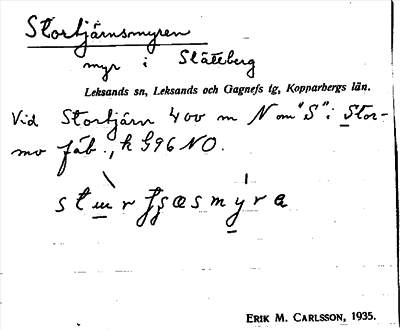 Stortjärnsmyren
myr i Slättberg
Leksands sn, Leksands och Gagnefs tg, Kopparbergs län.
Vid Stortjärn 400 m N om "S" i Stor-
mo fäb., k G96 NO.
ERIK M. CARLSSON, 1935.